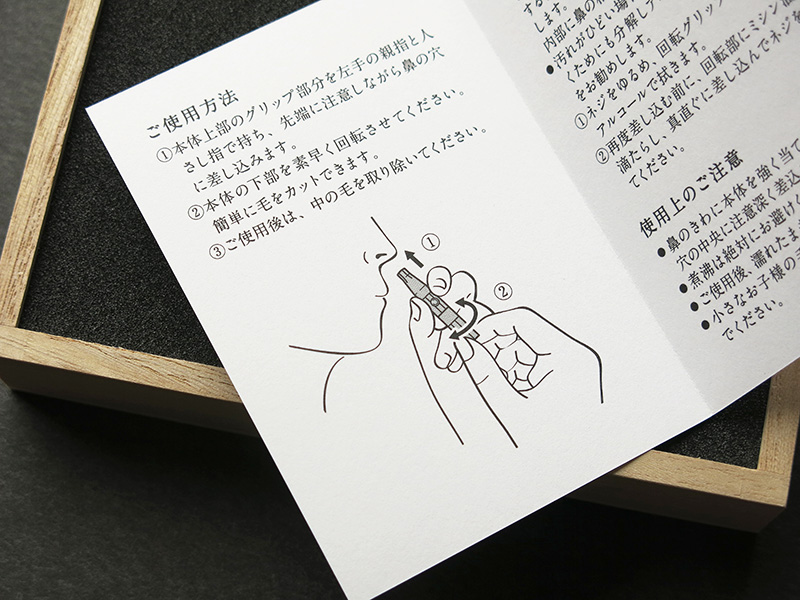 ご使用方法
①本体上部のグリップ部分を左手の親指と人
さし指で持ち、先端に注意しながら鼻の穴
に差し込みます。
②本体の下部を素早く回転させてください。
簡単に毛をカットできます。
③ご使用後は、中の毛を取り除いてください。
①
②
します。
内部に鼻の
●汚れがひどい場
くためにも分解し
をお勧めします。
①ネジをゆるめ、回転グリップ
アルコールで拭きます。
②再度差し込む前に、回転部にミシン油
滴たらし、真直ぐに差し込んでネジを
てください。
使用上のご注意
●鼻のきわに本体を強く当て
穴の中央に注意深く差込
●煮沸は絶対にお避けく
●ご使用後、濡れたま
●小さなお子様の手
でください。